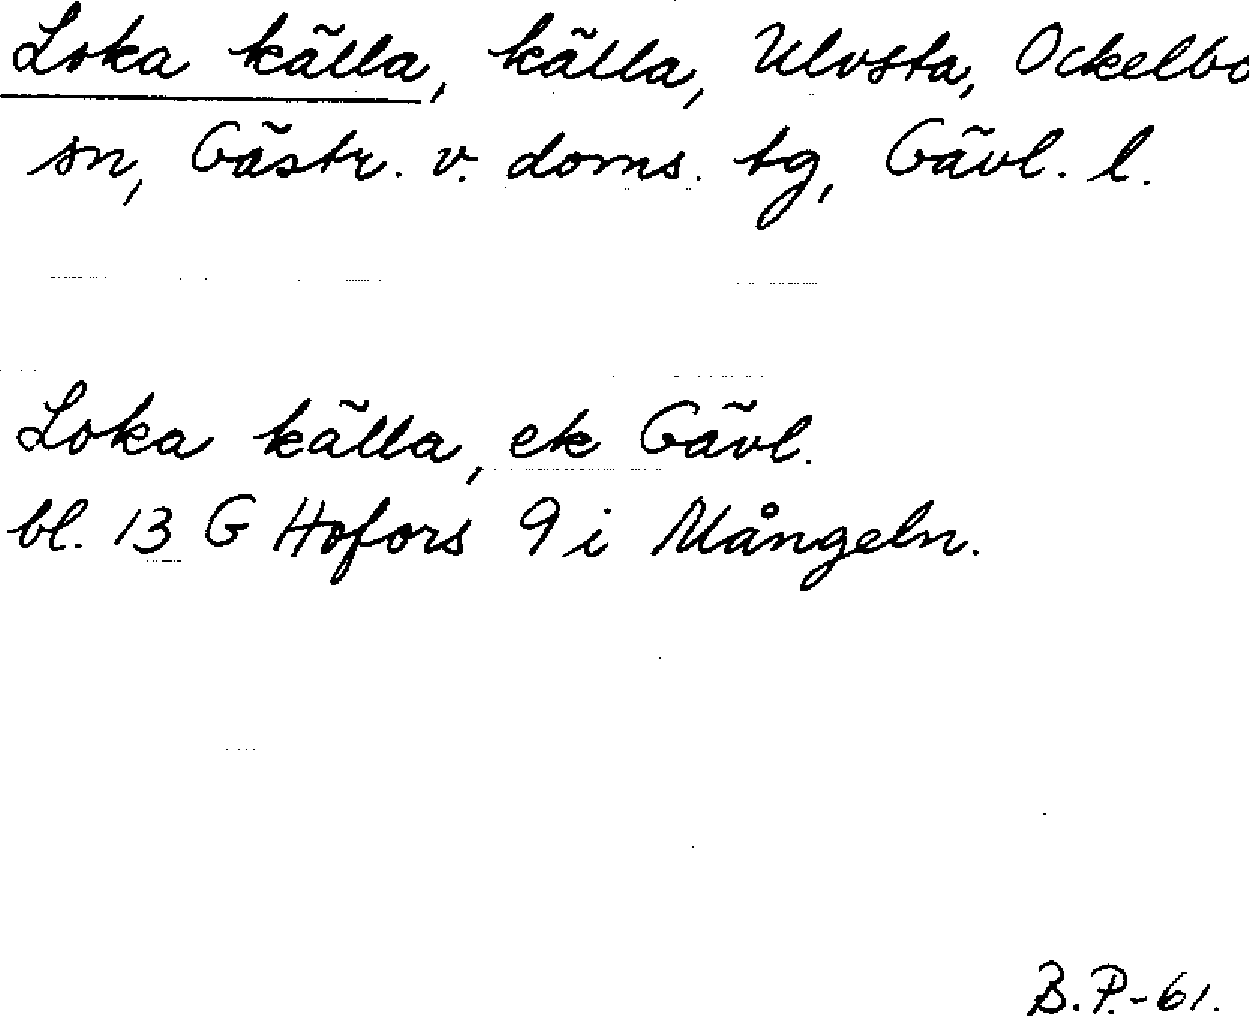 Loka källa, källa, Ulvsta, Ockelbo
sn, Gästr. v. doms. tg, Gävl. l.
Loka källa, ek Gävl.
bl. 13 G Hofors 9 i Mångeln.
B.P.-61.